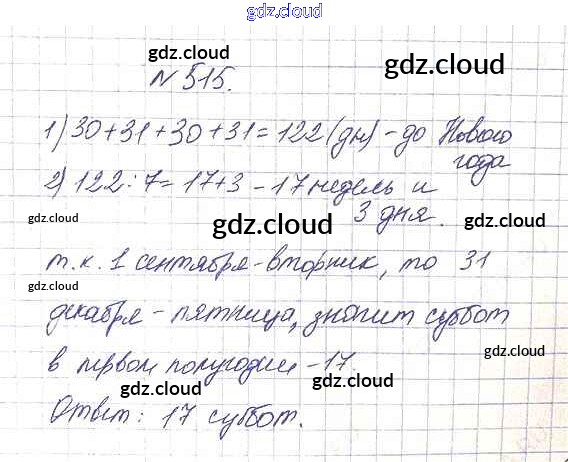 gdz.cloud
gdz.cloud
gdz.cloud
N 515.
1) 30+31+30+31=122 (дн) - до Нового
года
2) 122:7=17+3 - 17 недель и
3 дня.
gdz.cloud
gdz.cloud
gdz.cloud
т.к. 1 сентября - вторник, то 31
gdz.cloud
декабря - пятница, значит суббот
gdz.cloud
gdz.cloud
в первом полугодии - 17.
gdz.cloud
Ответ: 17 суббот.
gdz.cloud